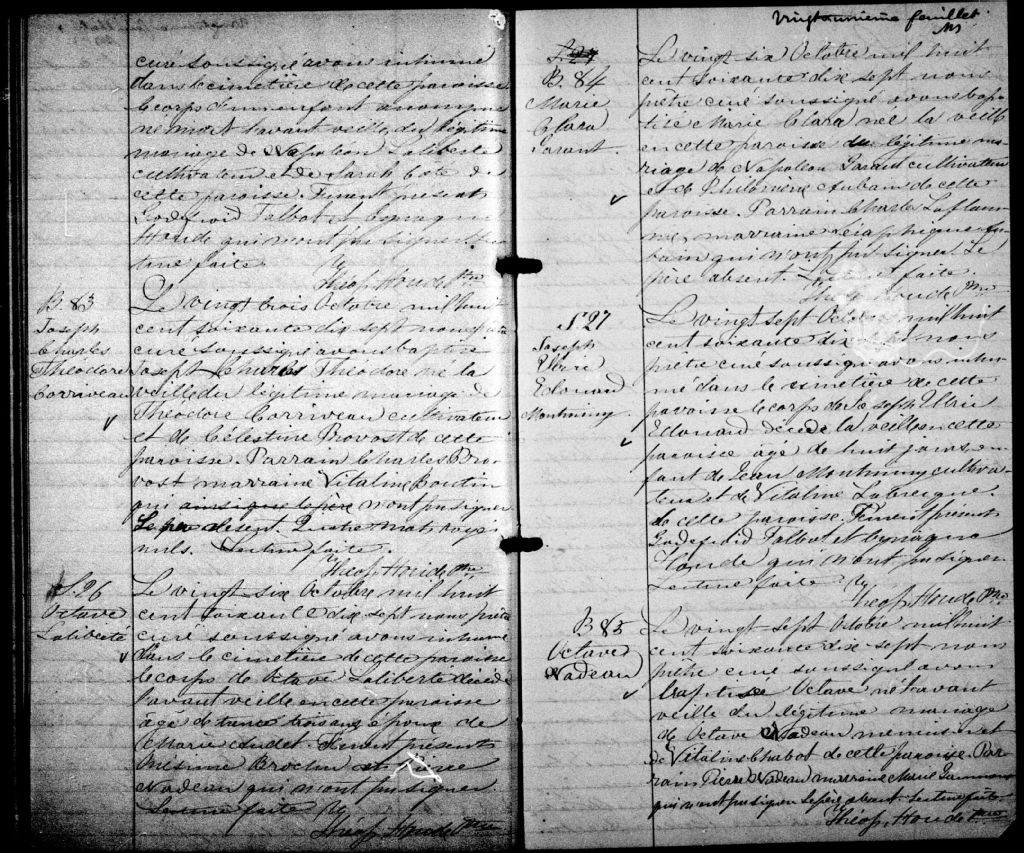 curé soussigné avons inhumé
dans le cimetière de cette paroisse
le corps d'un enfant anonyme
né mort l'avant veille du légitime
mariage de Napoléon Laliberté
cultivateur et de Sarah Coté de
cette paroisse. Furent présent
Godefroid Talbot et
Houde qui n'ont pu signer. Lec
ture faite
Théop. Houde Ptre
B. 83
Joseph
Charles
Théodore
Corriveau
Le vingt trois Octobre mil huit
cent soixante dix sept nous ptre
curé soussigné avons baptisé
Joseph Charles Théodore né la
veille du légitime mariage de
Théodore Corriveau cultivateur
et de Célestine Provost de cette
paroisse. Parrain Charles Pro
vost marraine Vitaline Boutin
qui ainsi que le père n'ont pu signer
Le père absent.
nuls. Lecture faite.
Théop. Houde Ptre
S. 26
Octave
Laliberté
Le vingt six Octobre mil huit
cent soixante dix sept nous prêtre
curé soussigné avons inhumé
dans le cimetière de cette paroisse
le corps de Octave Laliberté décédé
l'avant veille en cette paroisse
agé de trente trois ans époux de
Marie Audet. Furent présents
Onésime Brochu et
Nadeau qui n'ont pu signer.
Lecture faite
Théop. Houde Ptre
Vingt unième feuillet
S. 27
B. 84
Marie
Clara
Parant
Le vingt six Octobre mil huit
cent soixante dix sept nous
prêtre curé soussigné avons bap
tisé Marie Clara née la veille
en cette paroisse du légitime ma
riage de Napoléon Parant cultivateur
et de Philomène Aubin de cette
paroisse. Parrain Charles Laflam
me, marraine Séraphique Au
bin qui n'ont pu signer. Le
père absent. Lecture faite.
Théop. Houde Ptre
S 27
Joseph
Ulric
Edouard
Montminy
Le vingt sept Octobre mil huit
cent soixante dix sept nous
prêtre curé soussigné avons inhu
mé dans le cimetière de cette
paroisse le corps de Joseph Ulric
Edouard décédé la veille en cette
paroisse agé de huit jours en
fant de Jean Montminy cultiva
teur et de Vitaline Labrecque
de cette paroisse. Furent présents
Godefroid Talbot et
Houde qui n'ont pu signer
Lecture faite
Théop. Houde Ptre
B 85
Octave
Nadeau
Le vingt sept Octobre mil huit
cent soixante dix sept nous
prêtre curé soussigné avons
baptisé Octave né l'avant
veille du légitime mariage
de Octave Nadeau menuisier et
de Vitaline Chabot de cette paroisse. Par
rain Pierre Nadeau marraine Marie
qui n'ont pu signer le père absent. Lecture faite.
Théop. Houde Ptre